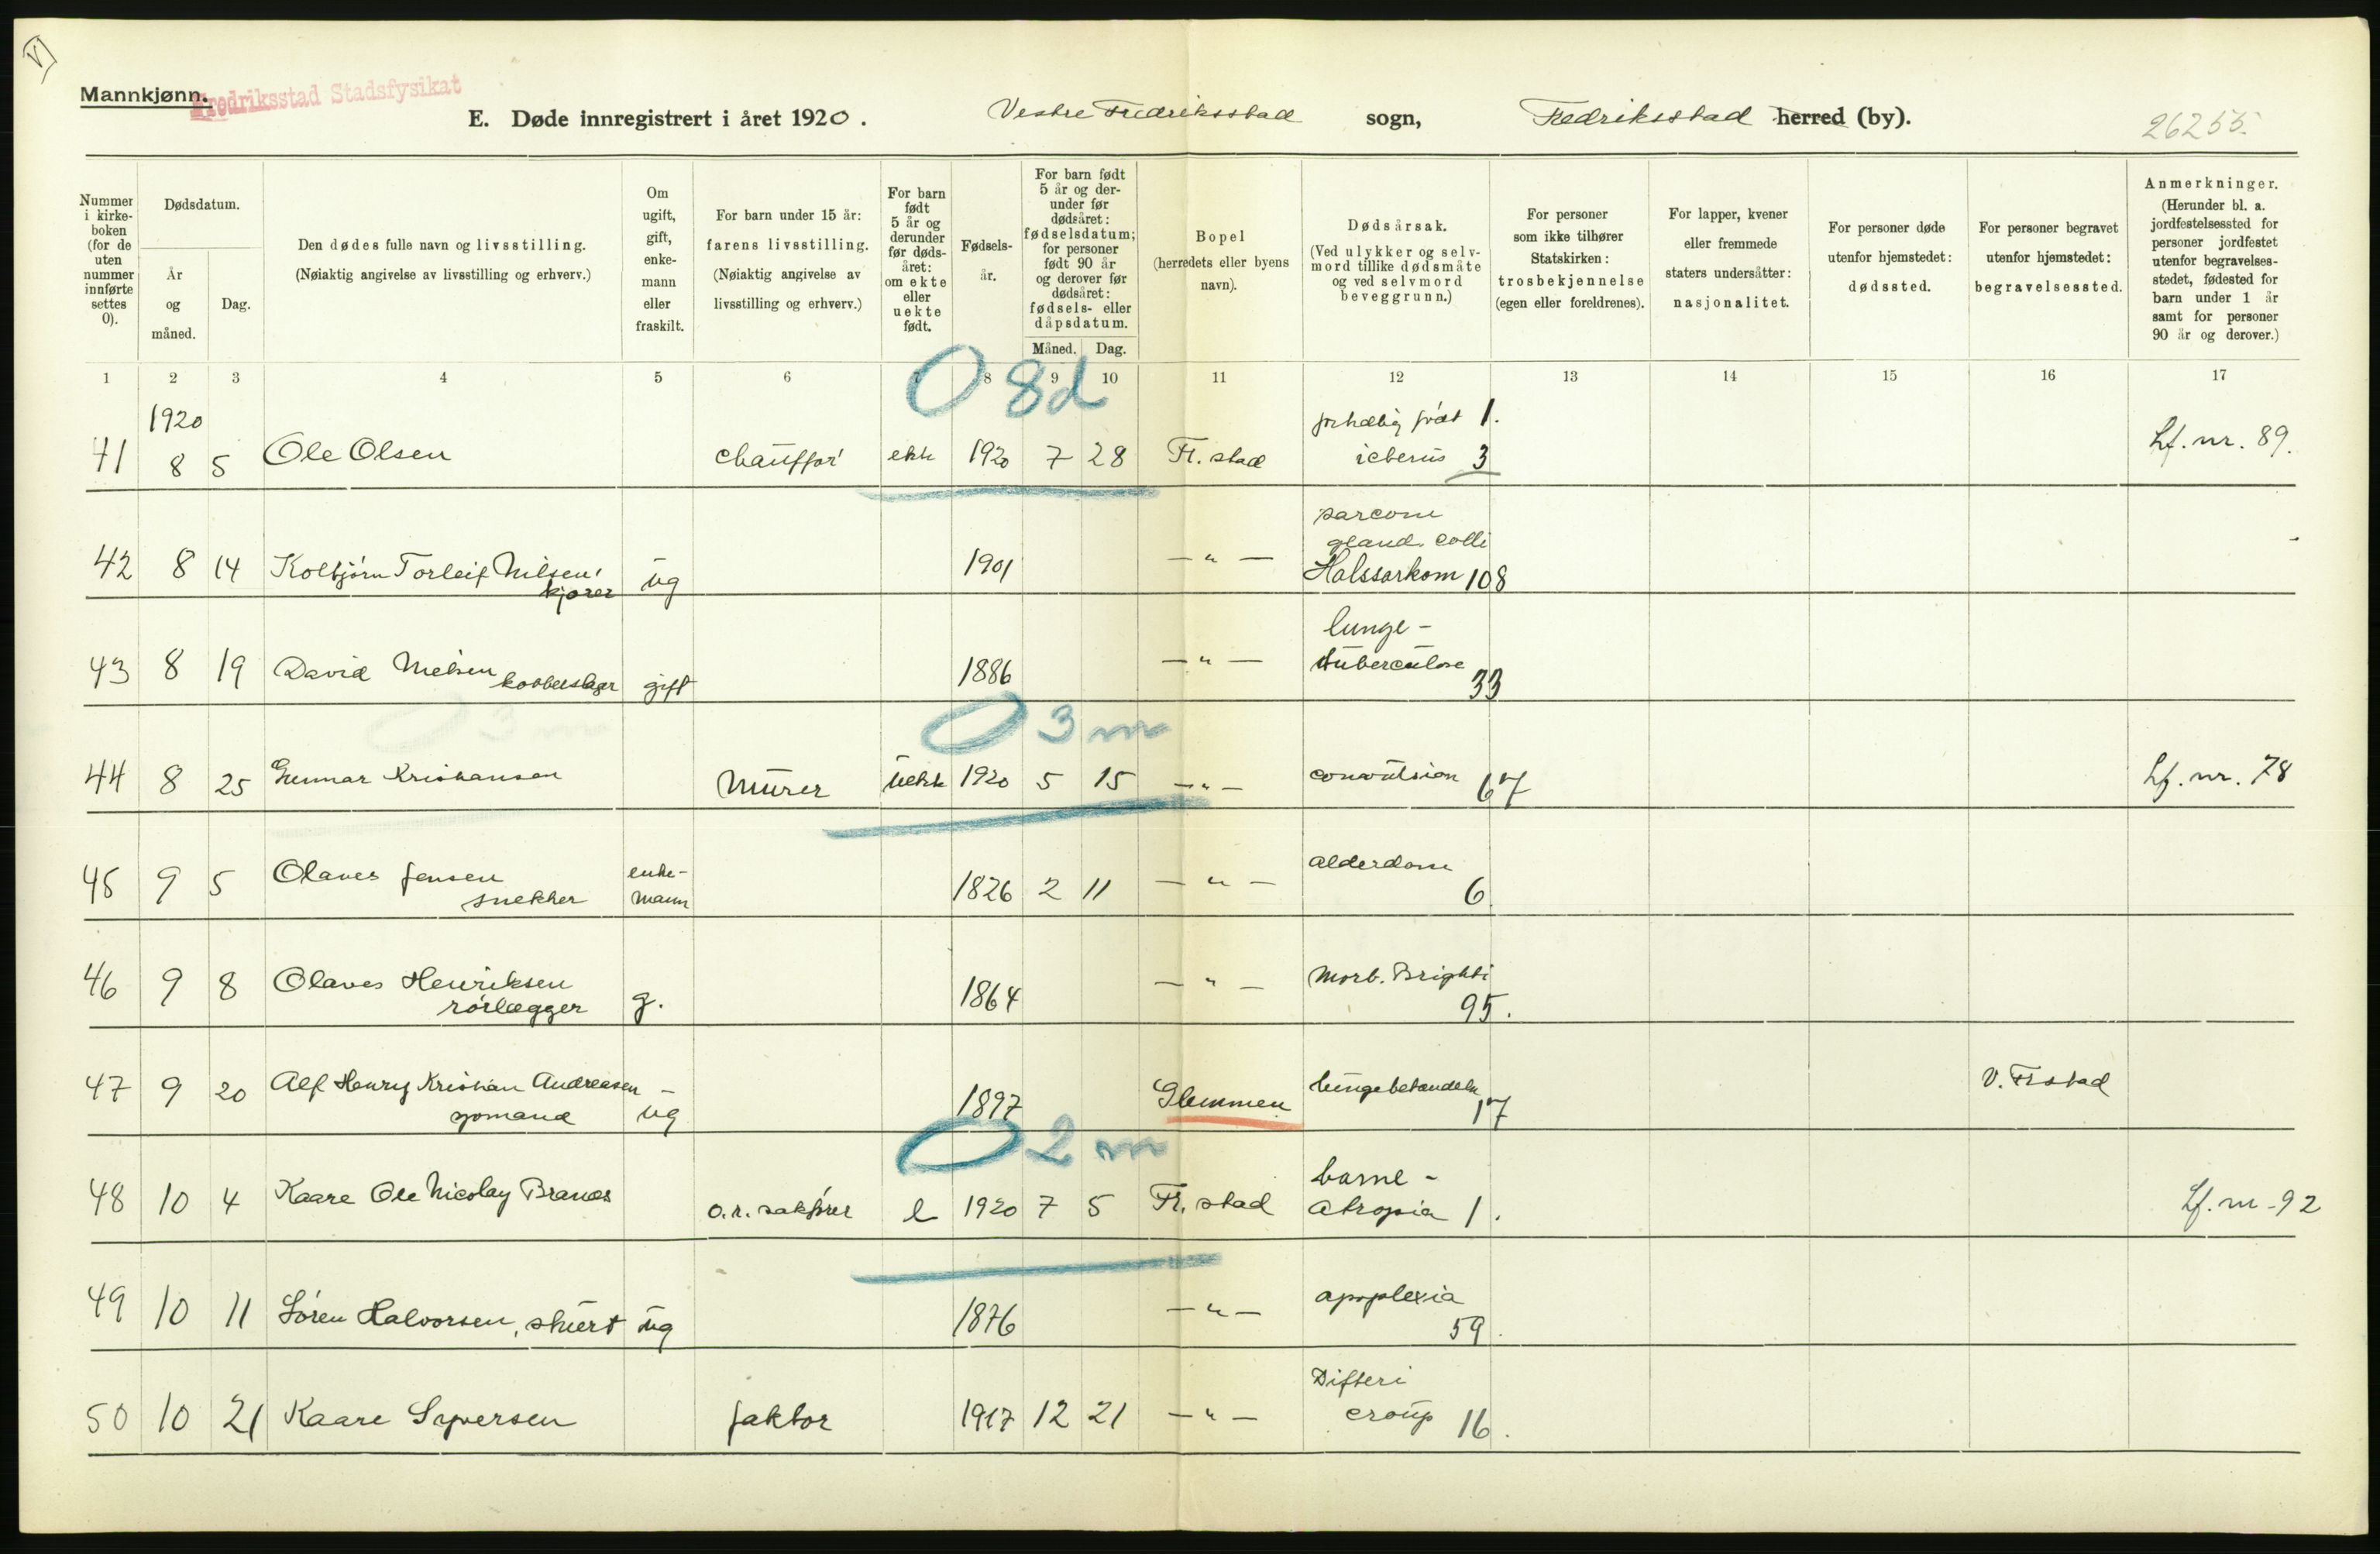 V
Mannkjønn.
Fredriksstad Stadsfysikat
E. Døde innregistrert i året 1920. Vestre Fredriksstad sogn, Fredriksstad herred (by). 26255.
Nummer i kirke-boken (for de uten nummer innførte settes 0).
Dødsdatum.
År og måned.
Dag.
Den dødes fulle navn og livsstilling.
(Nøiaktig angivelse av livsstilling og erhverv.)
Om ugift, gift, enke-mann eller fraskilt.
For barn under 15 år: farens livsstilling. (Nøiaktig angivelse av livsstilling og erhverv.)
For barn født 5 år og derunder før døds-året: om ekte eller uekte født.
Fødsels-år.
For barn født 5 år og der-under før dødsåret: fødselsdatum; for personer født 90 år og derover før dødsåret: fødsels- eller dåpsdatum.
Måned. Dag.
Bopel (herredets eller byens navn).
Dødsårsak. (Ved ulykker og selv-mord tillike dødsmåte og ved selvmord beveggrunn.)
For personer som ikke tilhører Statskirken: trosbekjennelse (egen eller foreldrenes).
For lapper, kvener eller fremmede staters undersåtter: nasjonalitet.
For personer døde utenfor hjemstedet: dødssted.
For personer begravet utenfor hjemstedet: begravelsessted.
Anmerkninger. (Herunder bl. a. jordfestelsessted for personer jordfestet utenfor begravelses-stedet, fødested for barn under 1 år samt for personer 90 år og derover.)
1 2 3 4 5 6 7 8 9 10 11 12 13 14 15 16 17
0 8d
1920
41 8 5 Ole Olsen chauffør ekte 1920 7 28 Fr. stad
født 1.
icterus 3
Lf. nr. 89.
sarcom
gland. colli
42 8 14 Kolbjörn Torleif Nilsen, kjører ug 1901 — " — Halssarkom 108
lunge-
43 8 19 David Nielsen kobberslager gift 1886 — " — tuberculose 33
0 3 m
44 8 25 Gunnar Kristiansen Murer uekte 1920 5 15 — " — convulsion 67 Lf. nr. 78
45 9 5 Olaves Jensen snekker enke-mann 1826 2 11 — " — alderdom 6
46 9 8 Olaves Henriksen rörlægger g. 1864 — " — Morb. Brighti 95.
47 9 20 Alf Henry Kristian Andreasen sjømand ug 1897 Glemmen lungebetændelse 17 V. Frstad
0 2 m
48 10 4 Kaare Ole Nicolay Branæs o.r. sakfører e 1920 7 5 Fr. stad
barne-
atropia 1.
Lf. nr - 92
49 10 11 Sören Halvorsen, stuert ug 1876 — " — apoplexia 59.
50 10 21 Kaare Syversen faktor 1917 12 21 — " —
Difteri
croup 16.